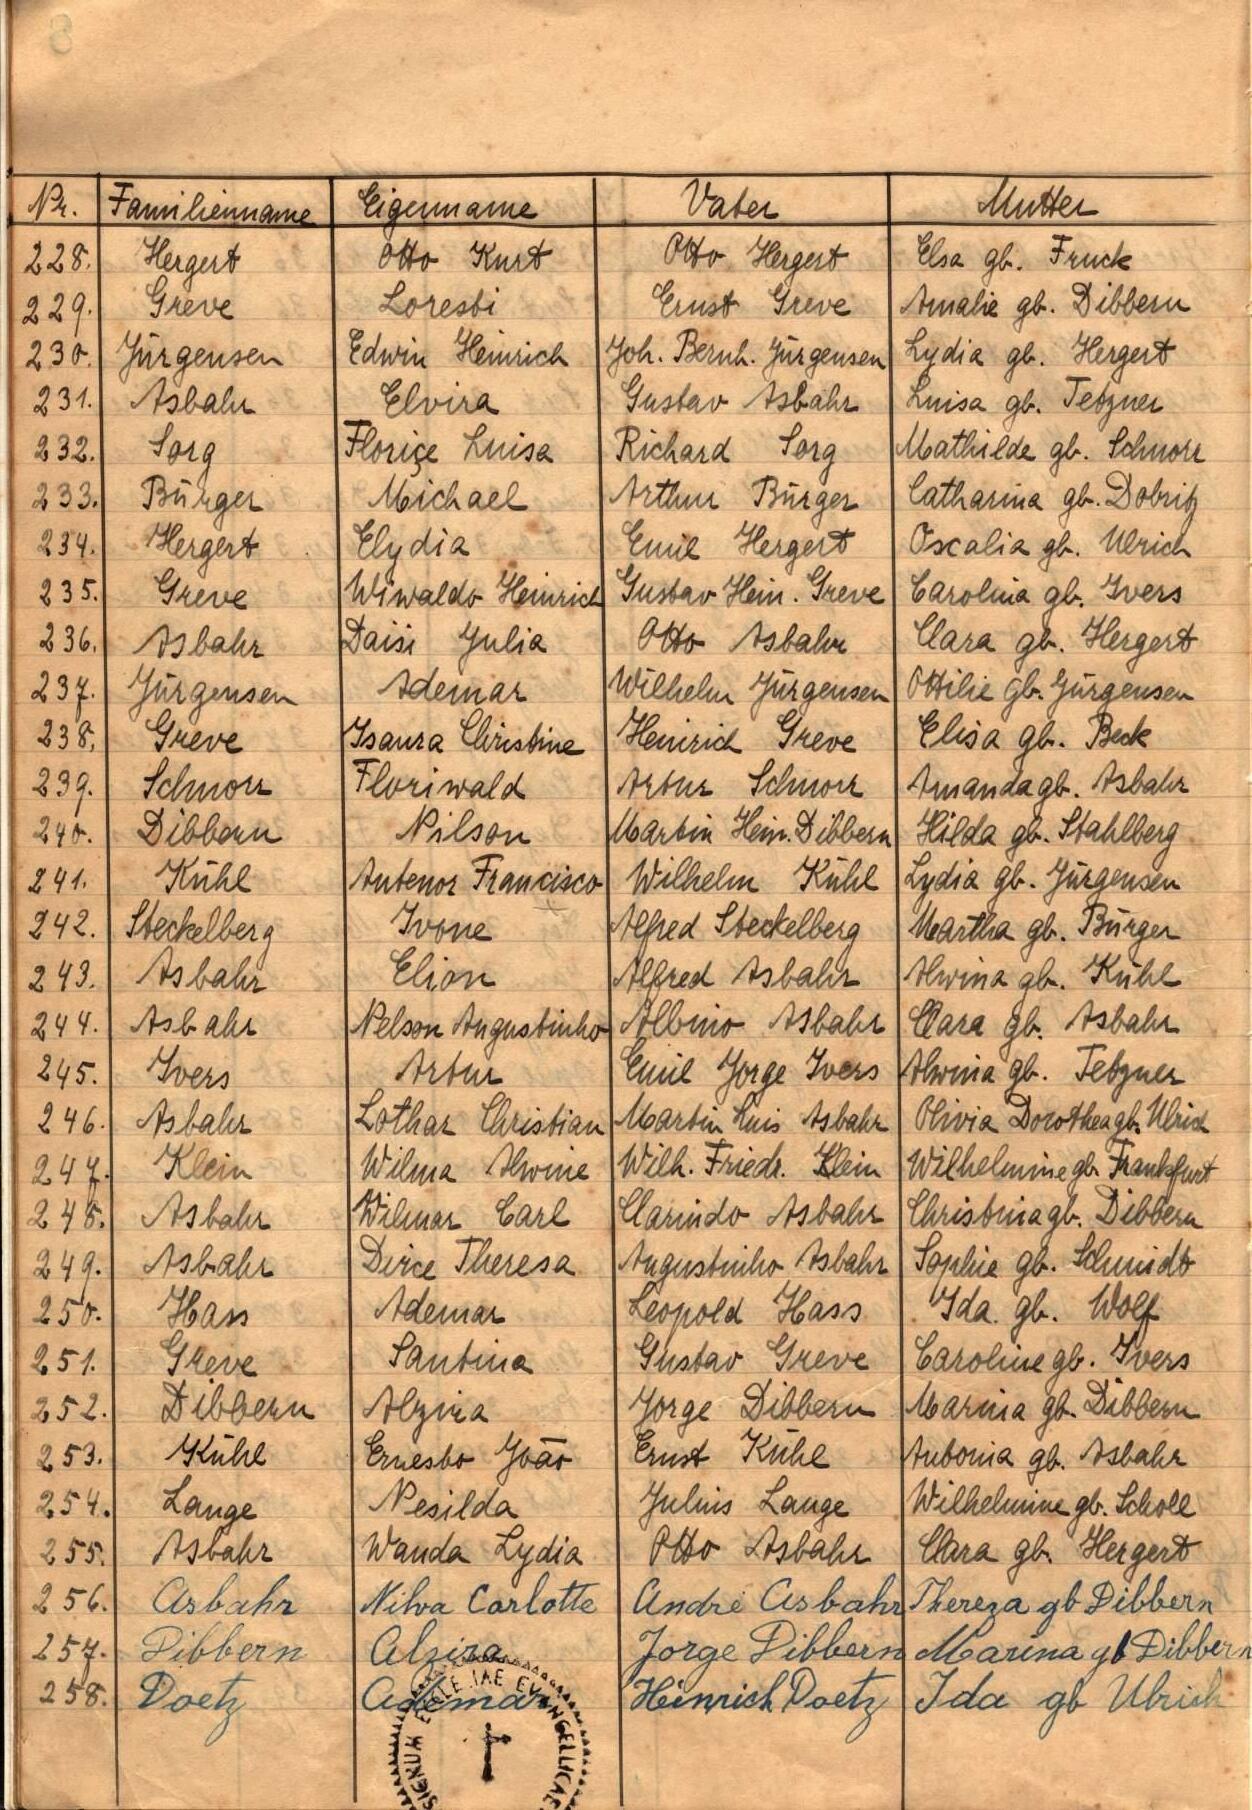 8
Nr. Familienname Eigenname Vater Mutter
228. Hergert Otto Kurt Otto Hergert Elsa gb. Fruck
229. Greve Loresti Ernst Greve Amalie gb. Dibbern
230. Jürgensen Edwin Heinrich Joh. Bernh. Jürgensen Lydia gb. Hergert
231. Asbahr Elvira Gustav Asbahr Luisa gb. Tetzner
232. Sorg Floriçe Luisa Richard Sorg Mathilde gb. Schnorr
233. Bürger Michael Arthur Bürger Catharina gb. Dobritz
234. Hergert Elydia Emil Hergert Oscalia gb. Ulrich
235. Greve Wiwaldo Heinrich Gustav Hein. Greve Carolina gb. Ivers
236. Asbahr Daisi Julia Otto Asbahr Clara gb. Hergert
237. Jürgensen Ademar Wilhelm Jürgensen Ottilie gb. Jürgensen
238. Greve Isaura Christine Heinrich Greve Elisa gb. Beck
239. Schnorr Floriwald Artur Schnorr Amanda gb. Asbahr
240. Dibbern Nilson Martin Hein. Dibbern Hilda gb. Stahlberg
241. Kühl Antenor Francisco Wilhelm Kühl Lydia gb. Jürgensen
242. Steckelberg Ivone Alfred Steckelberg Martha gb. Bürger
243. Asbahr Elion Alfred Asbahr Alwina gb. Kühl
244. Asbahr Nelson Augustinho Albino Asbahr Clara gb. Asbahr
245. Ivers Artur Emil Jorge Ivers Alwina gb. Tetzner
246. Asbahr Lothar Christian Martin Luis Asbahr Olivia Dorothea gb. Ulrich
247. Klein Wilma Alwine Wilh. Friedr. Klein Wilhelmine gb. Frankfurt
248. Asbahr Wilmar Carl Clarindo Asbahr Christina gb. Dibbern
249. Asbahr Dirce Theresa Augustinho Asbahr Sophie gb. Schmidt
250. Hass Ademar Leopold Hass Ida gb. Wolf
251. Greve Santina Gustav Greve Caroline gb. Ivers
252. Dibbern Alzira Jorge Dibbern Marina gb. Dibbern
253. Kühl Ernesto João Ernst Kühl Antonia gb. Asbahr
254. Lange Nesilda Julius Lange Wilhelmine gb. Scholl
255. Asbahr Wanda Lydia Otto Asbahr Clara gb. Hergert
256. Asbahr Nilva Carlotte André Asbahr Thereza gb Dibbern
257. Dibbern Alzira Jorge Dibbern Marina gb Dibbern
258. Doetz Ademar Heinrich Doetz Ida gb Ulrich
SIGNUM EVANGELLICAE